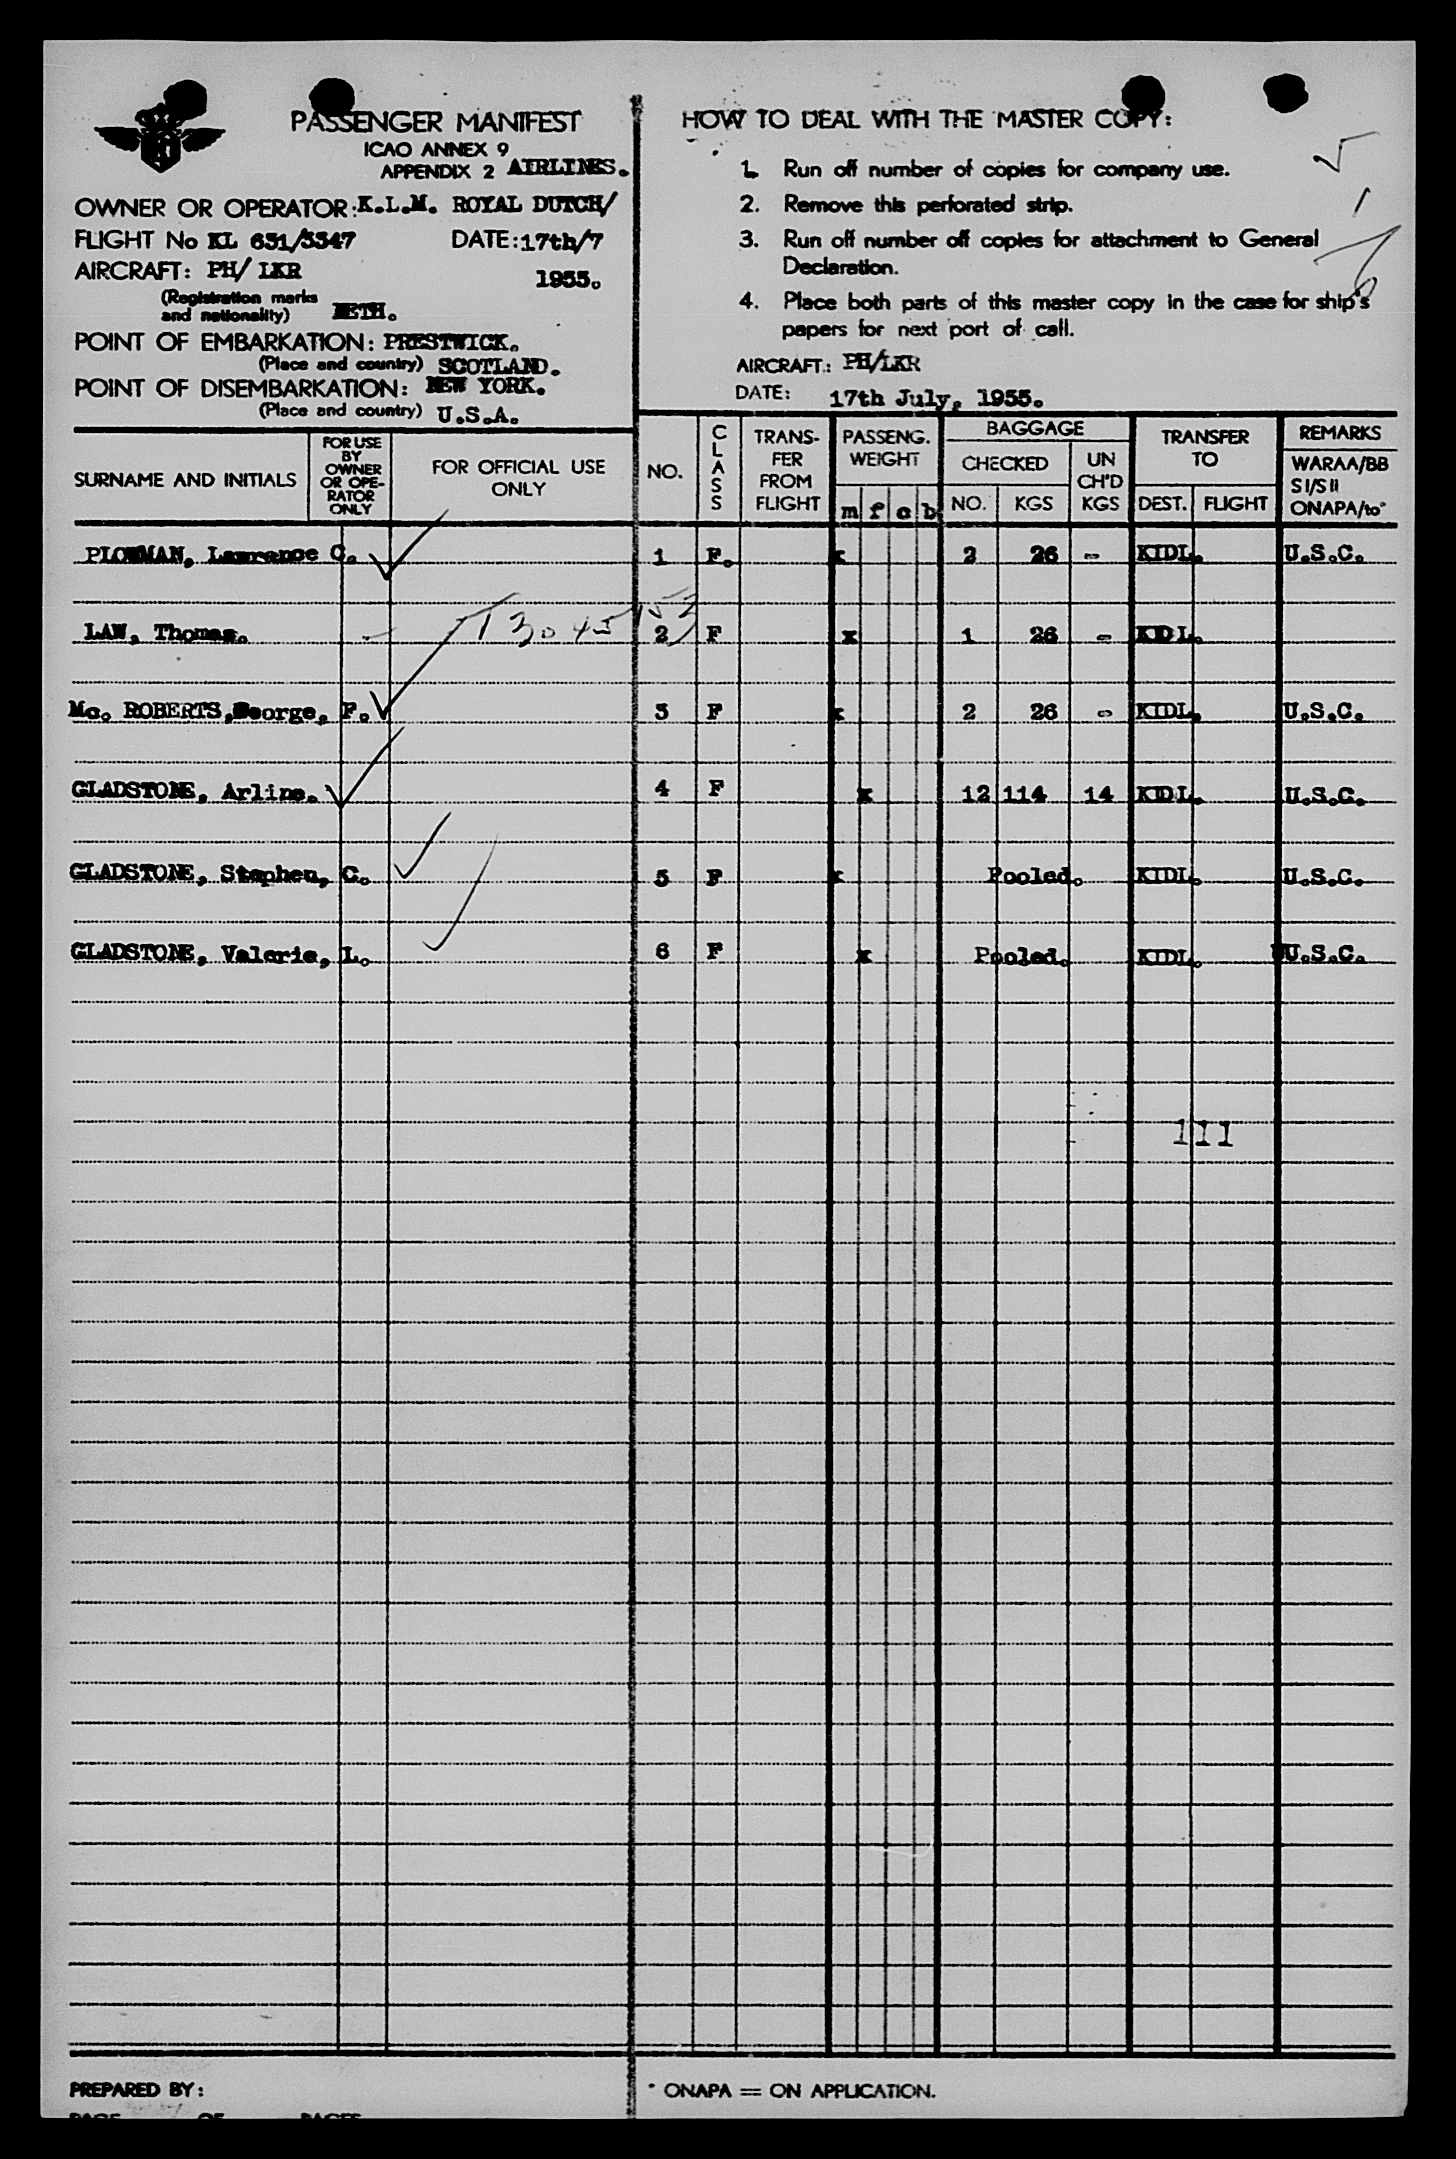 PASSENGER MANIFEST
ICAO ANNEX 9
APPENDIX 2 AIRLINES.
OWNER OR OPERATOR: K.L.M. ROYAL DUTCH/
FLIGHT No KL 631/3347 DATE: 17th/7
AIRCRAFT: PH/ LKR 1955.
(Registration marks
and nationality) NETH.
POINT OF EMBARKATION: PRESTWICK.
(Place and country) SCOTLAND.
POINT OF DISEMBARKATION: NEW YORK.
(Place and country) U.S.A.
HOW TO DEAL WITH THE MASTER COPY:
1. Run off number of copies for company use.
2. Remove this perforated strip.
3. Run off number off copies for attachment to General
Declaration.
4. Place both parts of this master copy in the case for ship's
papers for next port of call.
AIRCRAFT: PH/LKR
DATE: 17th July, 1955.
SURNAME AND INITIALS
FOR USE
BY
OWNER
OR OPE-
RATOR
ONLY
FOR OFFICIAL USE
ONLY
NO.
CLASS
TRANS-
FER
FROM
FLIGHT
PASSENG.
WEIGHT
m f c b
BAGGAGE
CHECKED
NO. KGS
UN
CH'D
KGS
TRANSFER
TO
DEST. FLIGHT
REMARKS
WARAA/BB
SI/SII
ONAPA/to*
PLOWMAN, Lawrance C. 1 F. x 2 26 - KIDL. U.S.C.
LAW, Thomas. 2 F x 1 26 - KIDL.
Mc. ROBERTS, George, F. 3 F x 2 26 - KIDL. U.S.C.
GLADSTONE, Arline. 4 F x 12 114 14 KIDL. U.S.C.
GLADSTONE, Stephen, C. 5 F x Pooled. KIDL. U.S.C.
GLADSTONE, Valerie, L. 6 F x Pooled. KIDL. U.S.C.
111
PREPARED BY:
* ONAPA = ON APPLICATION.
PAGE OF PAGES